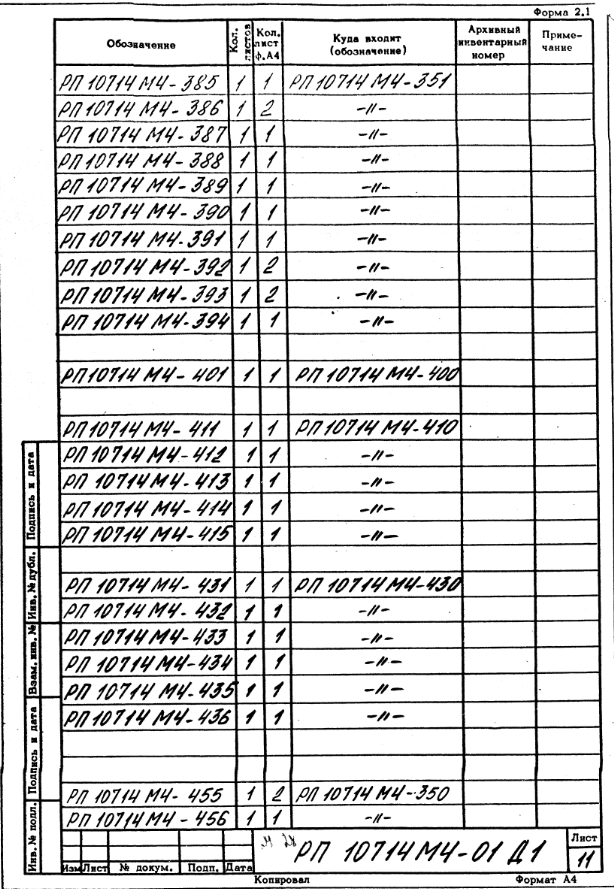 Форма 2.1
Обозначение Кол. листов Кол. лист ф.А4 Куда входит (обозначение) Архивный инвентарный номер Приме-чание
РП 10714 М4-385 1 1 РП 10714 М4-351
РП 10714 М4-386 1 2 -〃-
РП 10714 М4-387 1 1 -〃-
РП 10714 М4-388 1 1 -〃-
РП 10714 М4-389 1 1 -〃-
РП 10714 М4-390 1 1 -〃-
РП 10714 М4-391 1 1 -〃-
РП 10714 М4-392 1 2 -〃-
РП 10714 М4-393 1 2 -〃-
РП 10714 М4-394 1 1 -〃-
РП 10714 М4-401 1 1 РП 10714 М4-400
РП 10714 М4-411 1 1 РП 10714 М4-410
РП 10714 М4-412 1 1 -〃-
РП 10714 М4-413 1 1 -〃-
РП 10714 М4-414 1 1 -〃-
РП 10714 М4-415 1 1 -〃-
РП 10714 М4-431 1 1 РП 10714 М4-430
РП 10714 М4-432 1 1 -〃-
РП 10714 М4-433 1 1 -〃-
РП 10714 М4-434 1 1 -〃-
РП 10714 М4-435 1 1 -〃-
РП 10714 М4-436 1 1 -〃-
РП 10714 М4-455 1 2 РП 10714 М4-350
РП 10714 М4-456 1 1 -〃-
Подпись и дата
Инв. № дубл.
Взам. инв. №
Подпись и дата
Инв. № подл.
Изм Лист № докум. Подп. Дата
РП 10714 М4-01 Д1
Лист
11
Копировал Формат А4